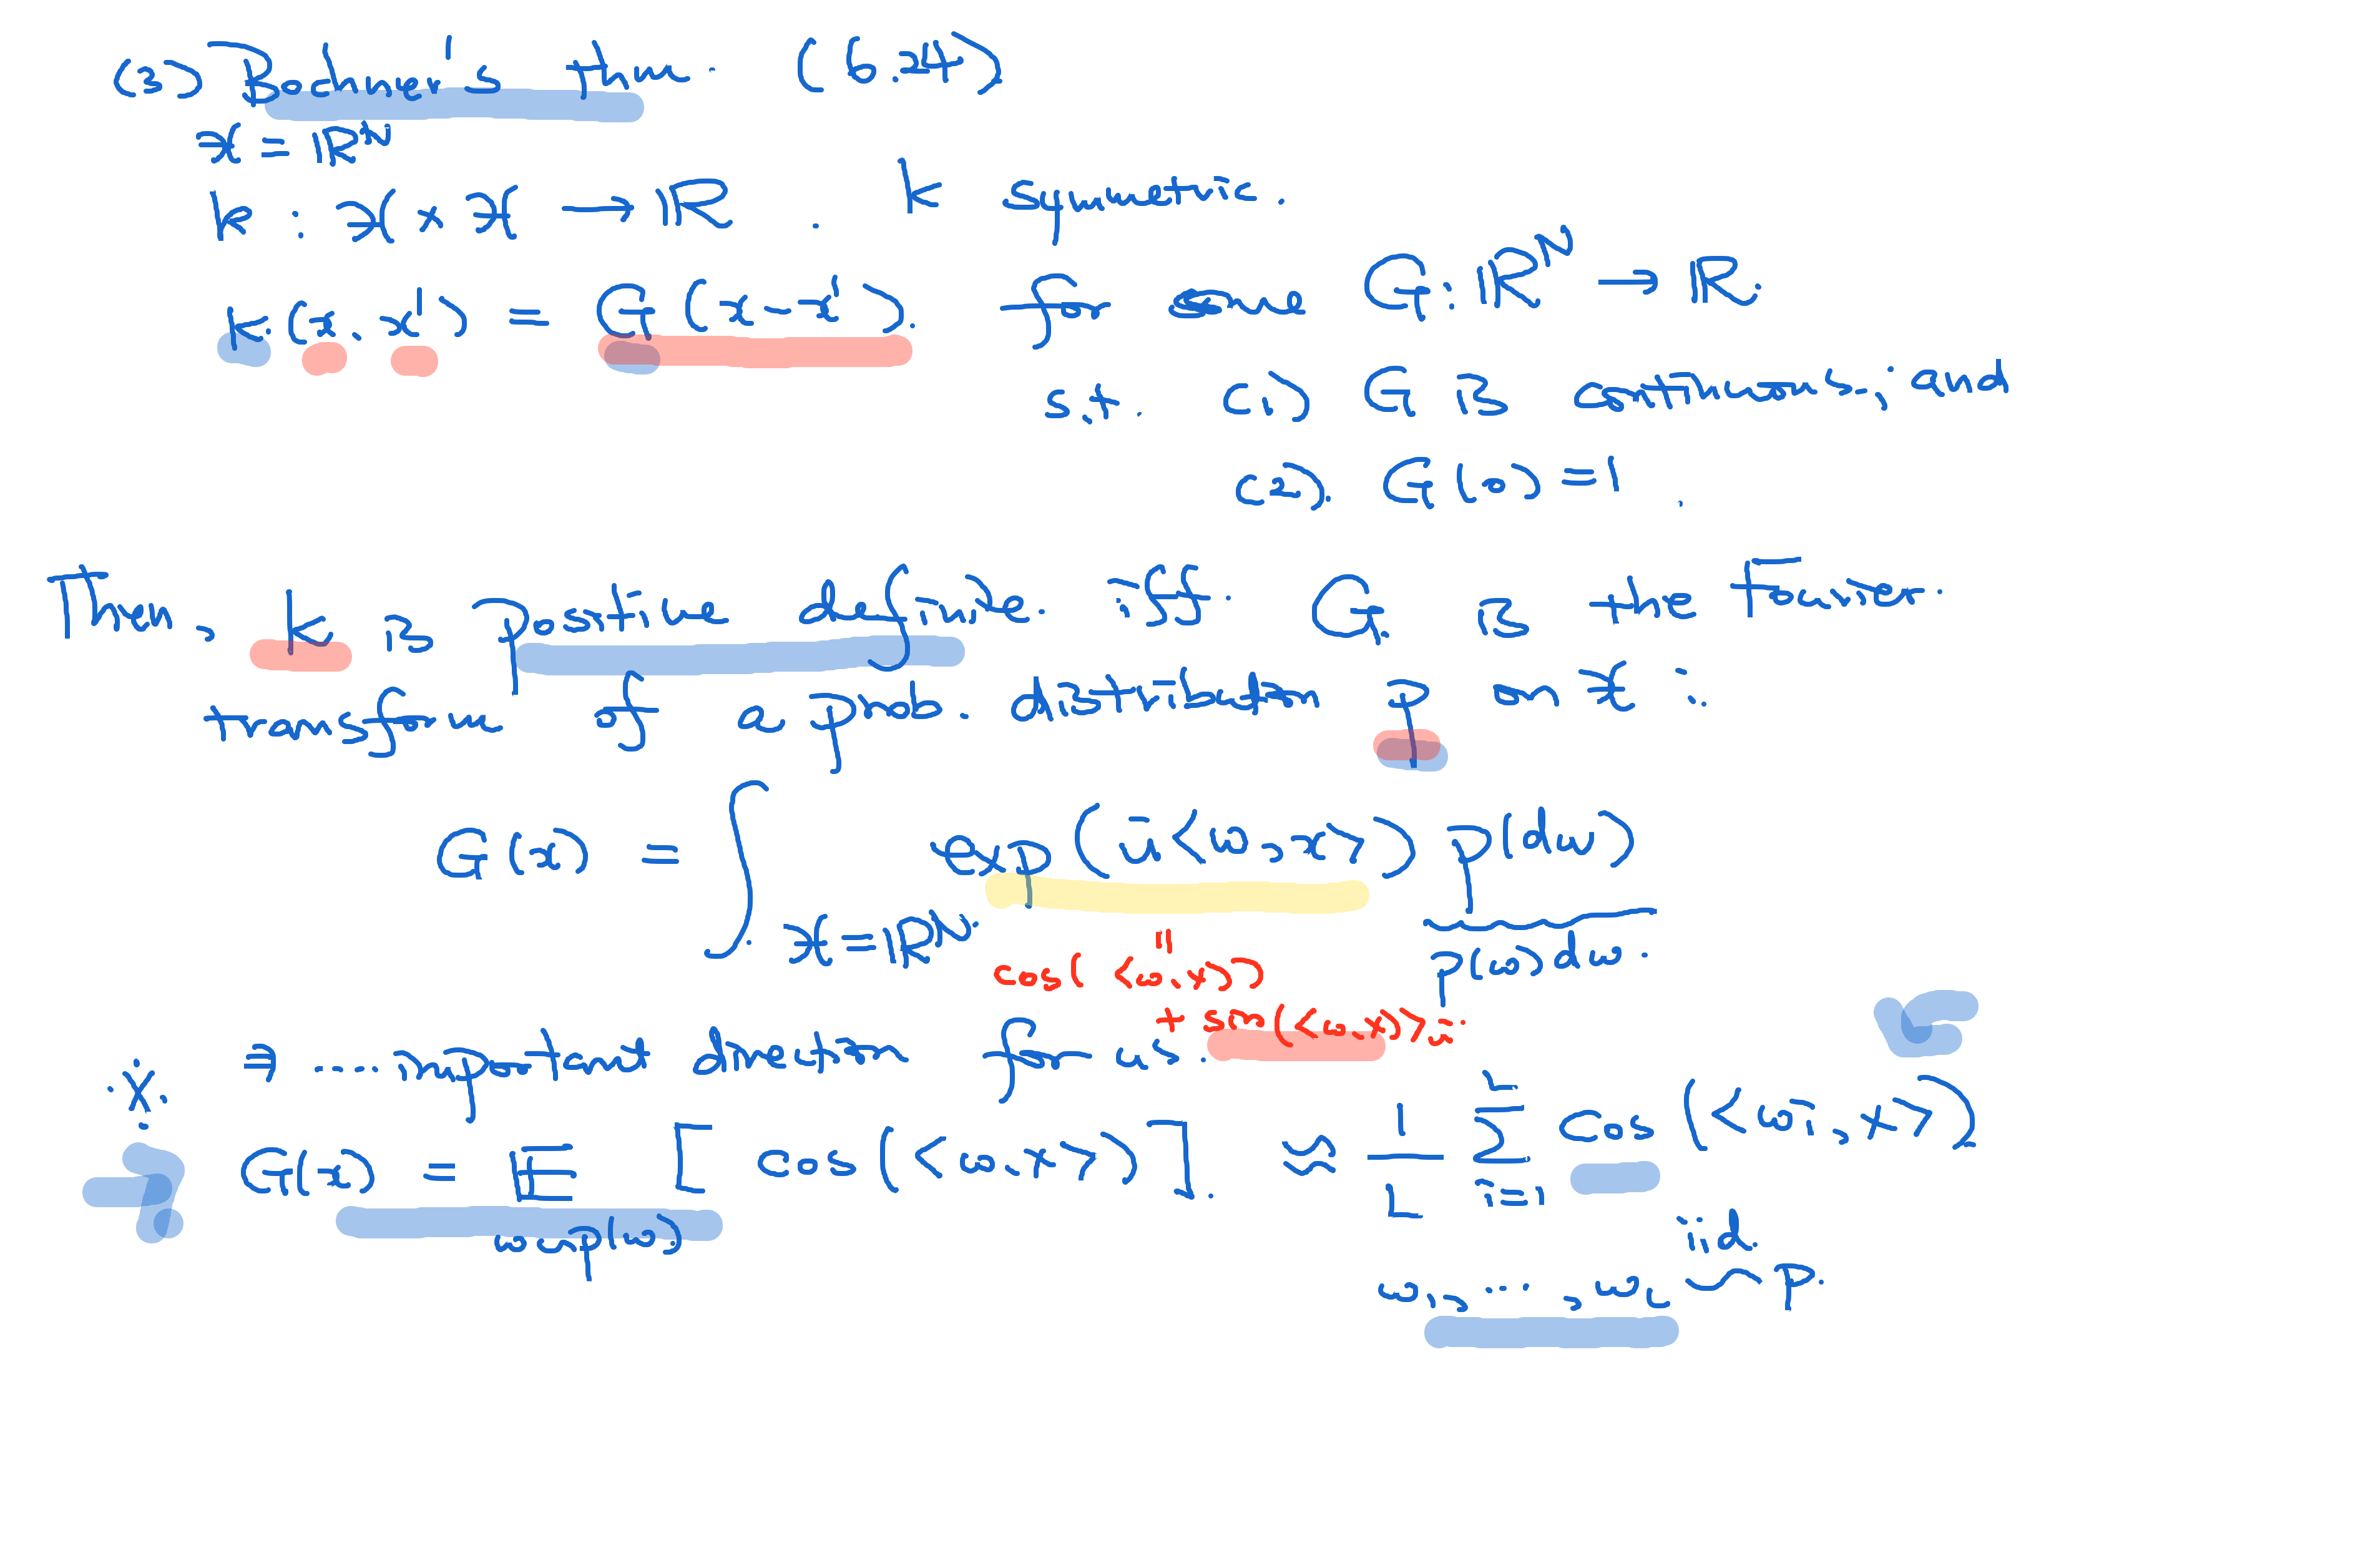 (3) Bochner's thm. (6.24)
X = ℝᴺ
k : X × X → ℝ. k symmetric.
k(x, x') = G(x-x'). for some G: ℝᴺ → ℝ.
s.t. (1) G is continuous, and
(2). G(0) = 1.
Then, k is positive definite. iff. G is the Fourier.
transform of a prob. distribution p on X :
G(x) = ∫_{X=ℝᴺ} exp(i<ω, x>) p(dω)
p(ω)dω.
"
cos(<ω,x>)
+ sin(<ω,x>) i
※ ⇒ .... important direction for us.
G(x) = E_{ω~p(ω)} [cos(<ω,x>)]. ≈ 1/L Σ_{i=1}^{L} cos(<ωi, x>)
ω₁, ..., ω_L iid ~ p.